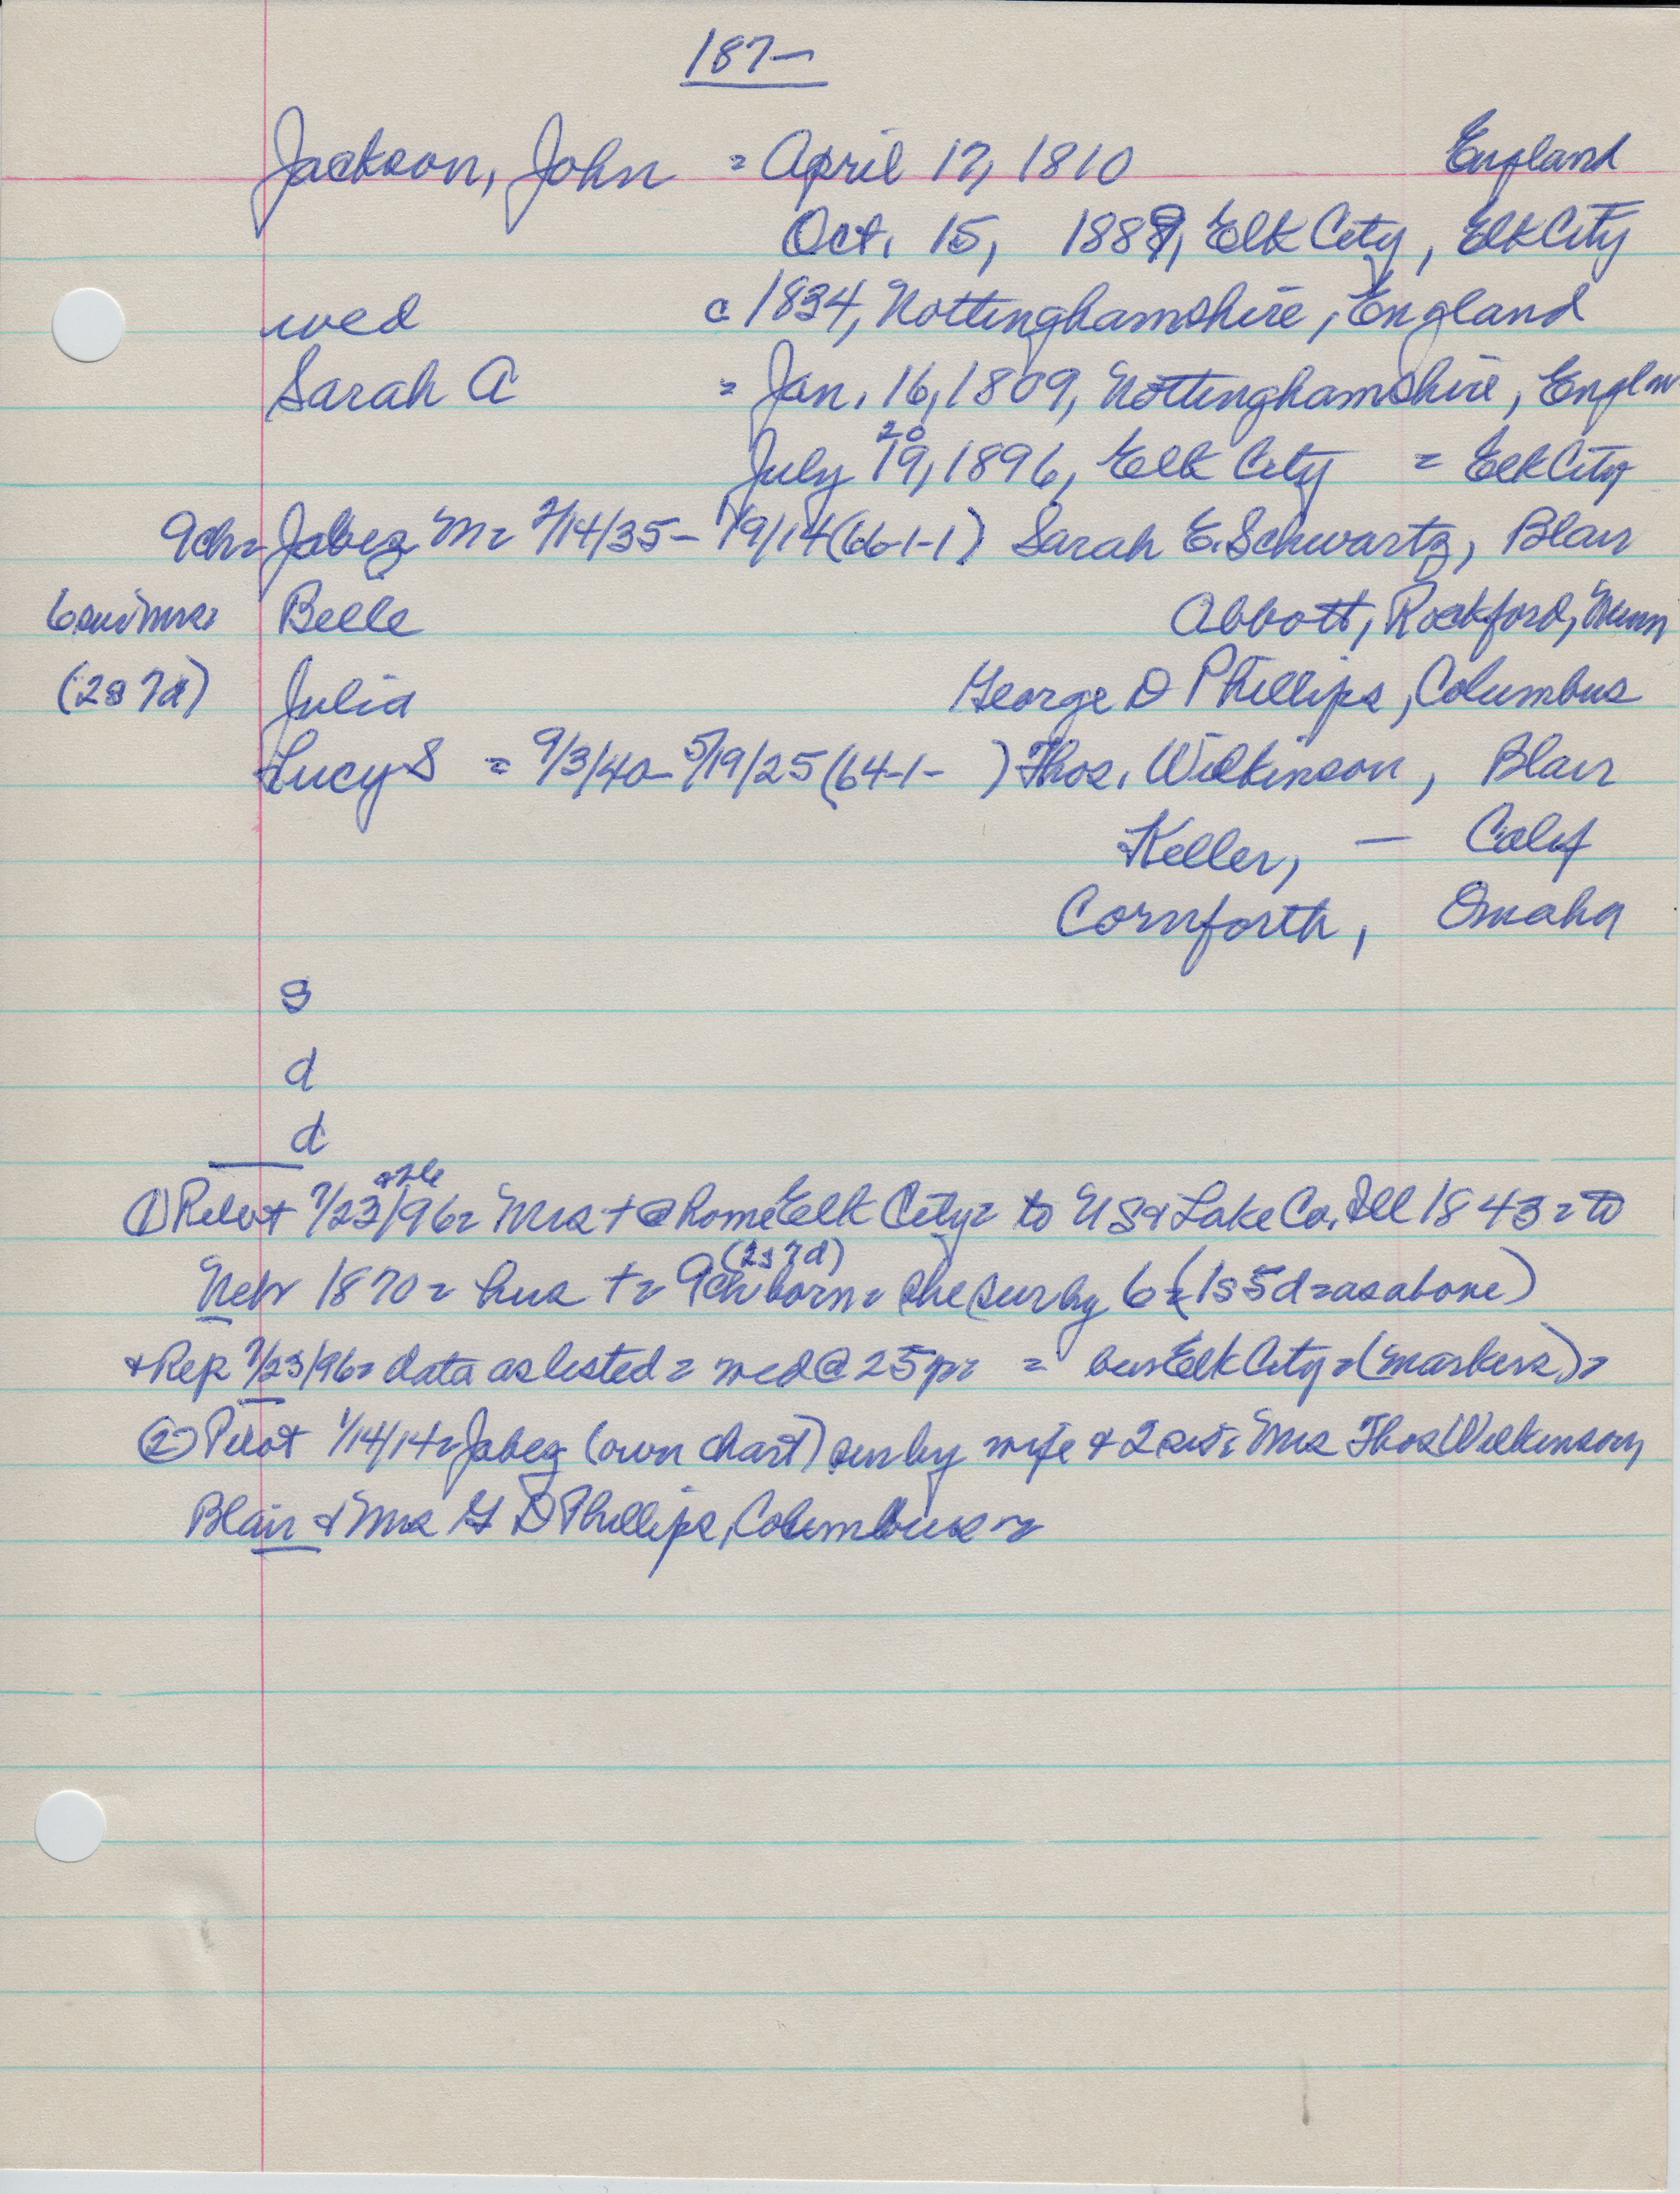 187-
Jackson, John = April 17, 1810 England
Oct. 15, 1889, Elk City, Elk City
wed c 1834, Nottinghamshire, England
Sarah A = Jan. 16, 1809, Nottinghamshire, Englan
20
July 19, 1896, Elk City = Elk City
9ch= Jabez M= 2/14/35- 1/9/14 (66-1-1) Sarah E. Schwartz, Blair
Belle Abbott, Rockford, Minn
(2s 7d) Julia George D Phillips, Columbus
Lucy S = 9/3/40- 5/19/25 (64-1- ) Thos. Wilkinson, Blair
Keller, — Calif
Cornforth, Omaha
s
d
d
① Pilot 7/23/96= Mrs + @ home Elk City= to US & Lake Co. Ill 1843= to
(2s 7d)
Nebr 1870= hus += 9ch born= she sur by 6= (1s 5d= as above)
+ Rep 7/23/96= data as listed= wed @ 25 yr = bur Elk City= (markers)=
② Pilot 1/14/14= Jabez (own chart) sur by wife & 2 sis= Mrs Thos Wilkinson,
Blair & Mrs G D Phillips, Columbus=